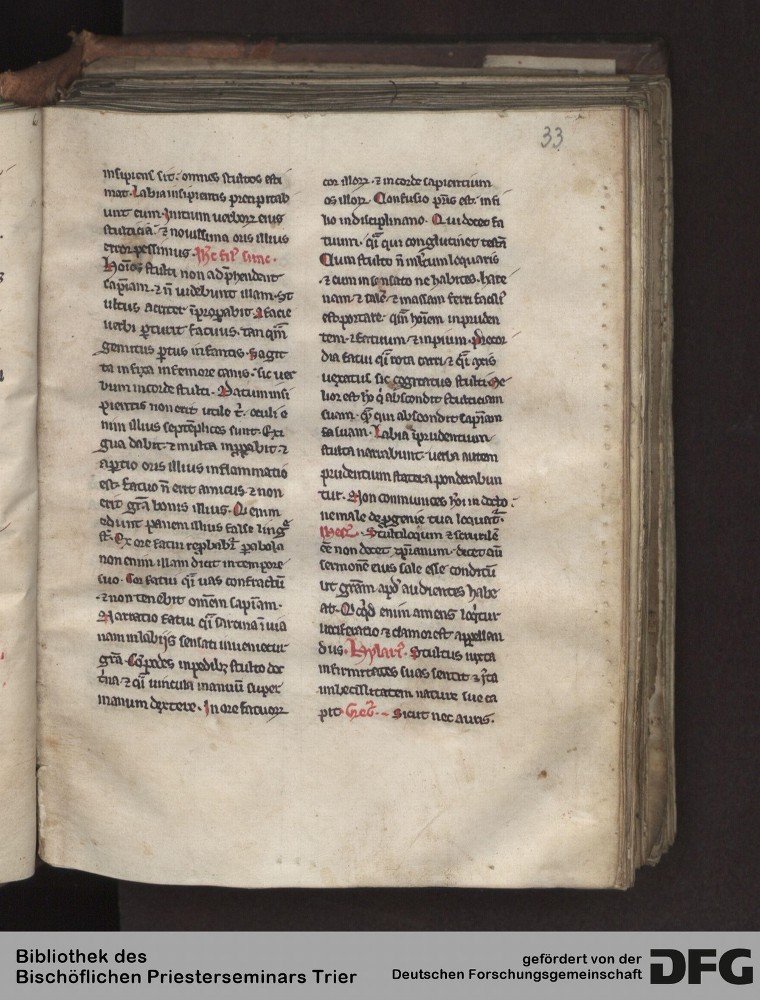 33
insipiens sit. omnes stultos esti
mat. Labia insipientis precipitab
unt eum. Initium verborum eius
stulticia. et novissima oris illius
error pessimus.
Hoīes stulti non apphendent
sapīam. ⁊ n̄ videbunt illam. St
verbi parturit fatuus. tanqm̄
gemitus partus infantis. Sagit
ta infixa in femore canis. sic ver
bum in corde stulti. Datum insi
pientis non erit utile t̄. oculi e
nim illius septemplices sunt. Exi
gua dabit ⁊ multa inp̄pabit. ⁊
aptio oris illius inflammatio
est. fatuo n̄ erit amicus ⁊ non
erit gr̄a bonis illius. Qui enim
edunt panem illius false ling
st̄. Ex ore fatui rep̄babr̄ parabola
non enim illam dicit in tempore
suo. Cor fatui q̄i vas confractū
⁊ non tenebit omēm sapīam.
Narratio fatui q̄i sarcina ī via
nam in labijs sensati invenietur
gr̄a. Cōpedes in pedibȝ stulto doc
t̄na ⁊ q̄i vincula manuū super
manum dextere. In ore fatuoꝝ
cor illoꝝ. ⁊ in corde sapientium
os illoꝝ. Confusio pr̄is est in fi
lio indisciplinato. Qui docet fa
tuum. q̄i qui conglutinet testā
Cum stulto n̄ multum loquaris
⁊ cum insensato ne habites. hare
nam ⁊ salē ⁊ massam ferri facili
est portare. qm̄ hoīem inpruden
tem. ⁊ fatuum ⁊ inpium. Precor
dia fatui q̄i rota carri ⁊ q̄i axis
versatus sic cogitatus stulti. Me
lior est hō q̄ abscondit stulticiam
suam. qm̄ qui abscondit sapīam
suam. Labia īprudentium
stulta narrabunt. verba autem
prudentium statera ponderabun
tur. Non communices hoī indocto
ne male de p̄genie tua loquat̄.
Stultiloqium ⁊ scurrile
ēē non decet xp̄ianum. dicet aūt
sermonē eius sale esse conditū
ut gr̄am apd̄ audientes habe
at. Qicqd̄ enim amens loqitur
vociferatio ⁊ clamor est appellan
dus. Hylari. Stultus iuxta
infirmitates suas sentit ⁊ iuxta
imbecillitatem nature sue ca
pit. Greg. Sicut nec auris.
Bibliothek des
Bischöflichen Priesterseminars Trier
gefördert von der
Deutschen Forschungsgemeinschaft
DFG